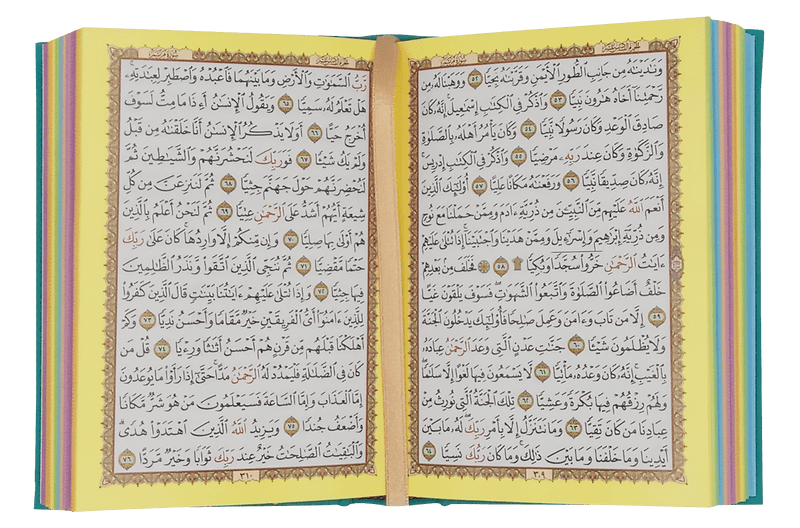 وَنَٰدَيْنَٰهُ مِن جَانِبِ ٱلطُّورِ ٱلْأَيْمَنِ وَقَرَّبْنَٰهُ نَجِيًّا ٥٢ وَوَهَبْنَا لَهُۥ مِن
رَّحْمَتِنَآ أَخَاهُ هَٰرُونَ نَبِيًّا ٥٣ وَٱذْكُرْ فِى ٱلْكِتَٰبِ إِسْمَٰعِيلَ إِنَّهُۥ كَانَ
صَادِقَ ٱلْوَعْدِ وَكَانَ رَسُولًا نَّبِيًّا ٥٤ وَكَانَ يَأْمُرُ أَهْلَهُۥ بِٱلصَّلَوٰةِ
وَٱلزَّكَوٰةِ وَكَانَ عِندَ رَبِّهِۦ مَرْضِيًّا ٥٥ وَٱذْكُرْ فِى ٱلْكِتَٰبِ إِدْرِيسَ
إِنَّهُۥ كَانَ صِدِّيقًا نَّبِيًّا ٥٦ وَرَفَعْنَٰهُ مَكَانًا عَلِيًّا ٥٧ أُو۟لَٰٓئِكَ ٱلَّذِينَ
أَنْعَمَ ٱللَّهُ عَلَيْهِم مِّنَ ٱلنَّبِيِّـۧنَ مِن ذُرِّيَّةِ ءَادَمَ وَمِمَّنْ حَمَلْنَا مَعَ نُوحٍ
وَمِن ذُرِّيَّةِ إِبْرَٰهِيمَ وَإِسْرَٰٓءِيلَ وَمِمَّنْ هَدَيْنَا وَٱجْتَبَيْنَآ إِذَا تُتْلَىٰ عَلَيْهِمْ
ءَايَٰتُ ٱلرَّحْمَٰنِ خَرُّوا۟ سُجَّدًا وَبُكِيًّا ۩ ٥٨ ۞ فَخَلَفَ مِنۢ بَعْدِهِمْ
خَلْفٌ أَضَاعُوا۟ ٱلصَّلَوٰةَ وَٱتَّبَعُوا۟ ٱلشَّهَوَٰتِ فَسَوْفَ يَلْقَوْنَ غَيًّا
٥٩ إِلَّا مَن تَابَ وَءَامَنَ وَعَمِلَ صَٰلِحًا فَأُو۟لَٰٓئِكَ يَدْخُلُونَ ٱلْجَنَّةَ
وَلَا يُظْلَمُونَ شَيْـًٔا ٦٠ جَنَّٰتِ عَدْنٍ ٱلَّتِى وَعَدَ ٱلرَّحْمَٰنُ عِبَادَهُۥ
بِٱلْغَيْبِ إِنَّهُۥ كَانَ وَعْدُهُۥ مَأْتِيًّا ٦١ لَّا يَسْمَعُونَ فِيهَا لَغْوًا إِلَّا سَلَٰمًا
وَلَهُمْ رِزْقُهُمْ فِيهَا بُكْرَةً وَعَشِيًّا ٦٢ تِلْكَ ٱلْجَنَّةُ ٱلَّتِى نُورِثُ مِنْ
عِبَادِنَا مَن كَانَ تَقِيًّا ٦٣ وَمَا نَتَنَزَّلُ إِلَّا بِأَمْرِ رَبِّكَ لَهُۥ مَا بَيْنَ
أَيْدِينَا وَمَا خَلْفَنَا وَمَا بَيْنَ ذَٰلِكَ وَمَا كَانَ رَبُّكَ نَسِيًّا ٦٤
٣٠٩
رَّبُّ ٱلسَّمَٰوَٰتِ وَٱلْأَرْضِ وَمَا بَيْنَهُمَا فَٱعْبُدْهُ وَٱصْطَبِرْ لِعِبَٰدَتِهِۦ
هَلْ تَعْلَمُ لَهُۥ سَمِيًّا ٦٥ وَيَقُولُ ٱلْإِنسَٰنُ أَءِذَا مَا مِتُّ لَسَوْفَ
أُخْرَجُ حَيًّا ٦٦ أَوَلَا يَذْكُرُ ٱلْإِنسَٰنُ أَنَّا خَلَقْنَٰهُ مِن قَبْلُ
وَلَمْ يَكُ شَيْـًٔا ٦٧ فَوَرَبِّكَ لَنَحْشُرَنَّهُمْ وَٱلشَّيَٰطِينَ ثُمَّ
لَنُحْضِرَنَّهُمْ حَوْلَ جَهَنَّمَ جِثِيًّا ٦٨ ثُمَّ لَنَنزِعَنَّ مِن كُلِّ
شِيعَةٍ أَيُّهُمْ أَشَدُّ عَلَى ٱلرَّحْمَٰنِ عِتِيًّا ٦٩ ثُمَّ لَنَحْنُ أَعْلَمُ بِٱلَّذِينَ
هُمْ أَوْلَىٰ بِهَا صِلِيًّا ٧٠ وَإِن مِّنكُمْ إِلَّا وَارِدُهَا كَانَ عَلَىٰ رَبِّكَ
حَتْمًا مَّقْضِيًّا ٧١ ثُمَّ نُنَجِّى ٱلَّذِينَ ٱتَّقَوا۟ وَّنَذَرُ ٱلظَّٰلِمِينَ
فِيهَا جِثِيًّا ٧٢ وَإِذَا تُتْلَىٰ عَلَيْهِمْ ءَايَٰتُنَا بَيِّنَٰتٍ قَالَ ٱلَّذِينَ كَفَرُوا۟
لِلَّذِينَ ءَامَنُوٓا۟ أَىُّ ٱلْفَرِيقَيْنِ خَيْرٌ مَّقَامًا وَأَحْسَنُ نَدِيًّا ٧٣ وَكَمْ
أَهْلَكْنَا قَبْلَهُم مِّن قَرْنٍ هُمْ أَحْسَنُ أَثَٰثًا وَرِءْيًا ٧٤ قُلْ مَن
كَانَ فِى ٱلضَّلَٰلَةِ فَلْيَمْدُدْ لَهُ ٱلرَّحْمَٰنُ مَدًّا حَتَّىٰٓ إِذَا رَأَوْا۟ مَا يُوعَدُونَ
إِمَّا ٱلْعَذَابَ وَإِمَّا ٱلسَّاعَةَ فَسَيَعْلَمُونَ مَنْ هُوَ شَرٌّ مَّكَانًا
وَأَضْعَفُ جُندًا ٧٥ وَيَزِيدُ ٱللَّهُ ٱلَّذِينَ ٱهْتَدَوْا۟ هُدًى
وَٱلْبَٰقِيَٰتُ ٱلصَّٰلِحَٰتُ خَيْرٌ عِندَ رَبِّكَ ثَوَابًا وَخَيْرٌ مَّرَدًّا ٧٦
٣١٠